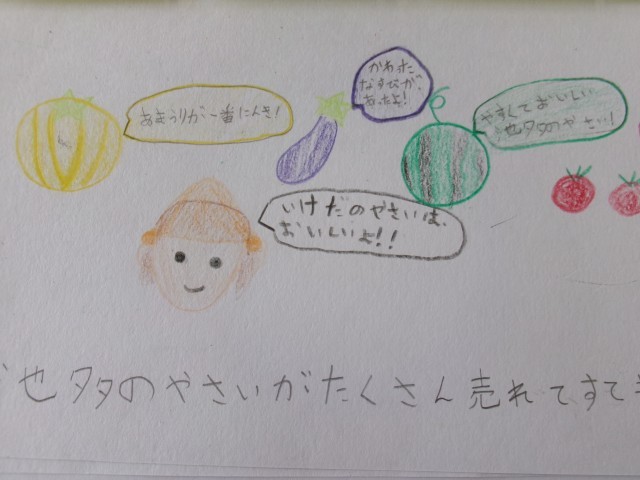 あまうりが一番にんき!
かわった
なすびが、
あったよ!
やすくておいしい
池多のやさい!
いけだのやさいは、
おいしいよ!!
池多のやさいがたくさん売れてすて